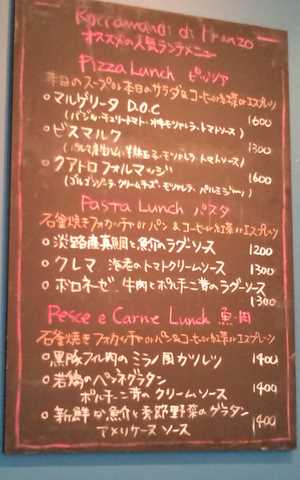 di Pranzo
オススメの人気ランチメニュー
Pizza Lunch ピッツァ
本日のスープ or 本日のサラダ & コーヒー or 紅茶 or エスプレッソ
○マルゲリータ D.O.C 1600
(バジル・チェリトマト・水牛モツァレラ・トマトソース)
○ビスマルク 1300
半熟玉子・モツァレラ・トマトソース)
○クアトロフォルマッジ 1600
(ゴルゴンゾーラ・クリームチーズ・モツァレラ・パルミジャーノ)
Pasta Lunch パスタ
石釜焼きフォカッチャ or パン & コーヒー or 紅茶 or エスプレッソ
○淡路産真鯛と魚介のラグーソース 1200
○クレマ 海老のトマトクリームソース 1300
○ボロネーゼ 牛肉とポルチーニ茸のラグーソース
1300
Pesce e Carne Lunch 魚・肉
石釜焼きフォカッチャ or パン & コーヒー or 紅茶 or エスプレッソ
○黒豚フィレ肉のミラノ風カツレツ 1400
○若鶏のペンネグラタン
ポルチーニ茸のクリームソース 1400
○新鮮な魚介と季節野菜のグラタン
アメリケーヌ ソース 1400